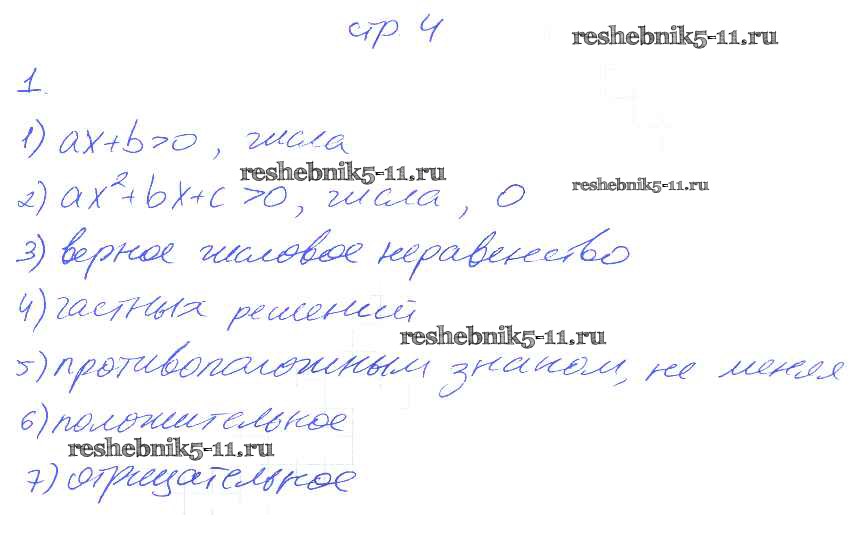 стр 4
reshebnik5-11.ru
1.
1) ax+b>0, числа
reshebnik5-11.ru
2) ax²+bx+c>0, числа, 0
reshebnik5-11.ru
3) верное числовое неравенство
4) частных решений
reshebnik5-11.ru
5) противоположным знаком, не меняя
6) положительное
reshebnik5-11.ru
7) отрицательное